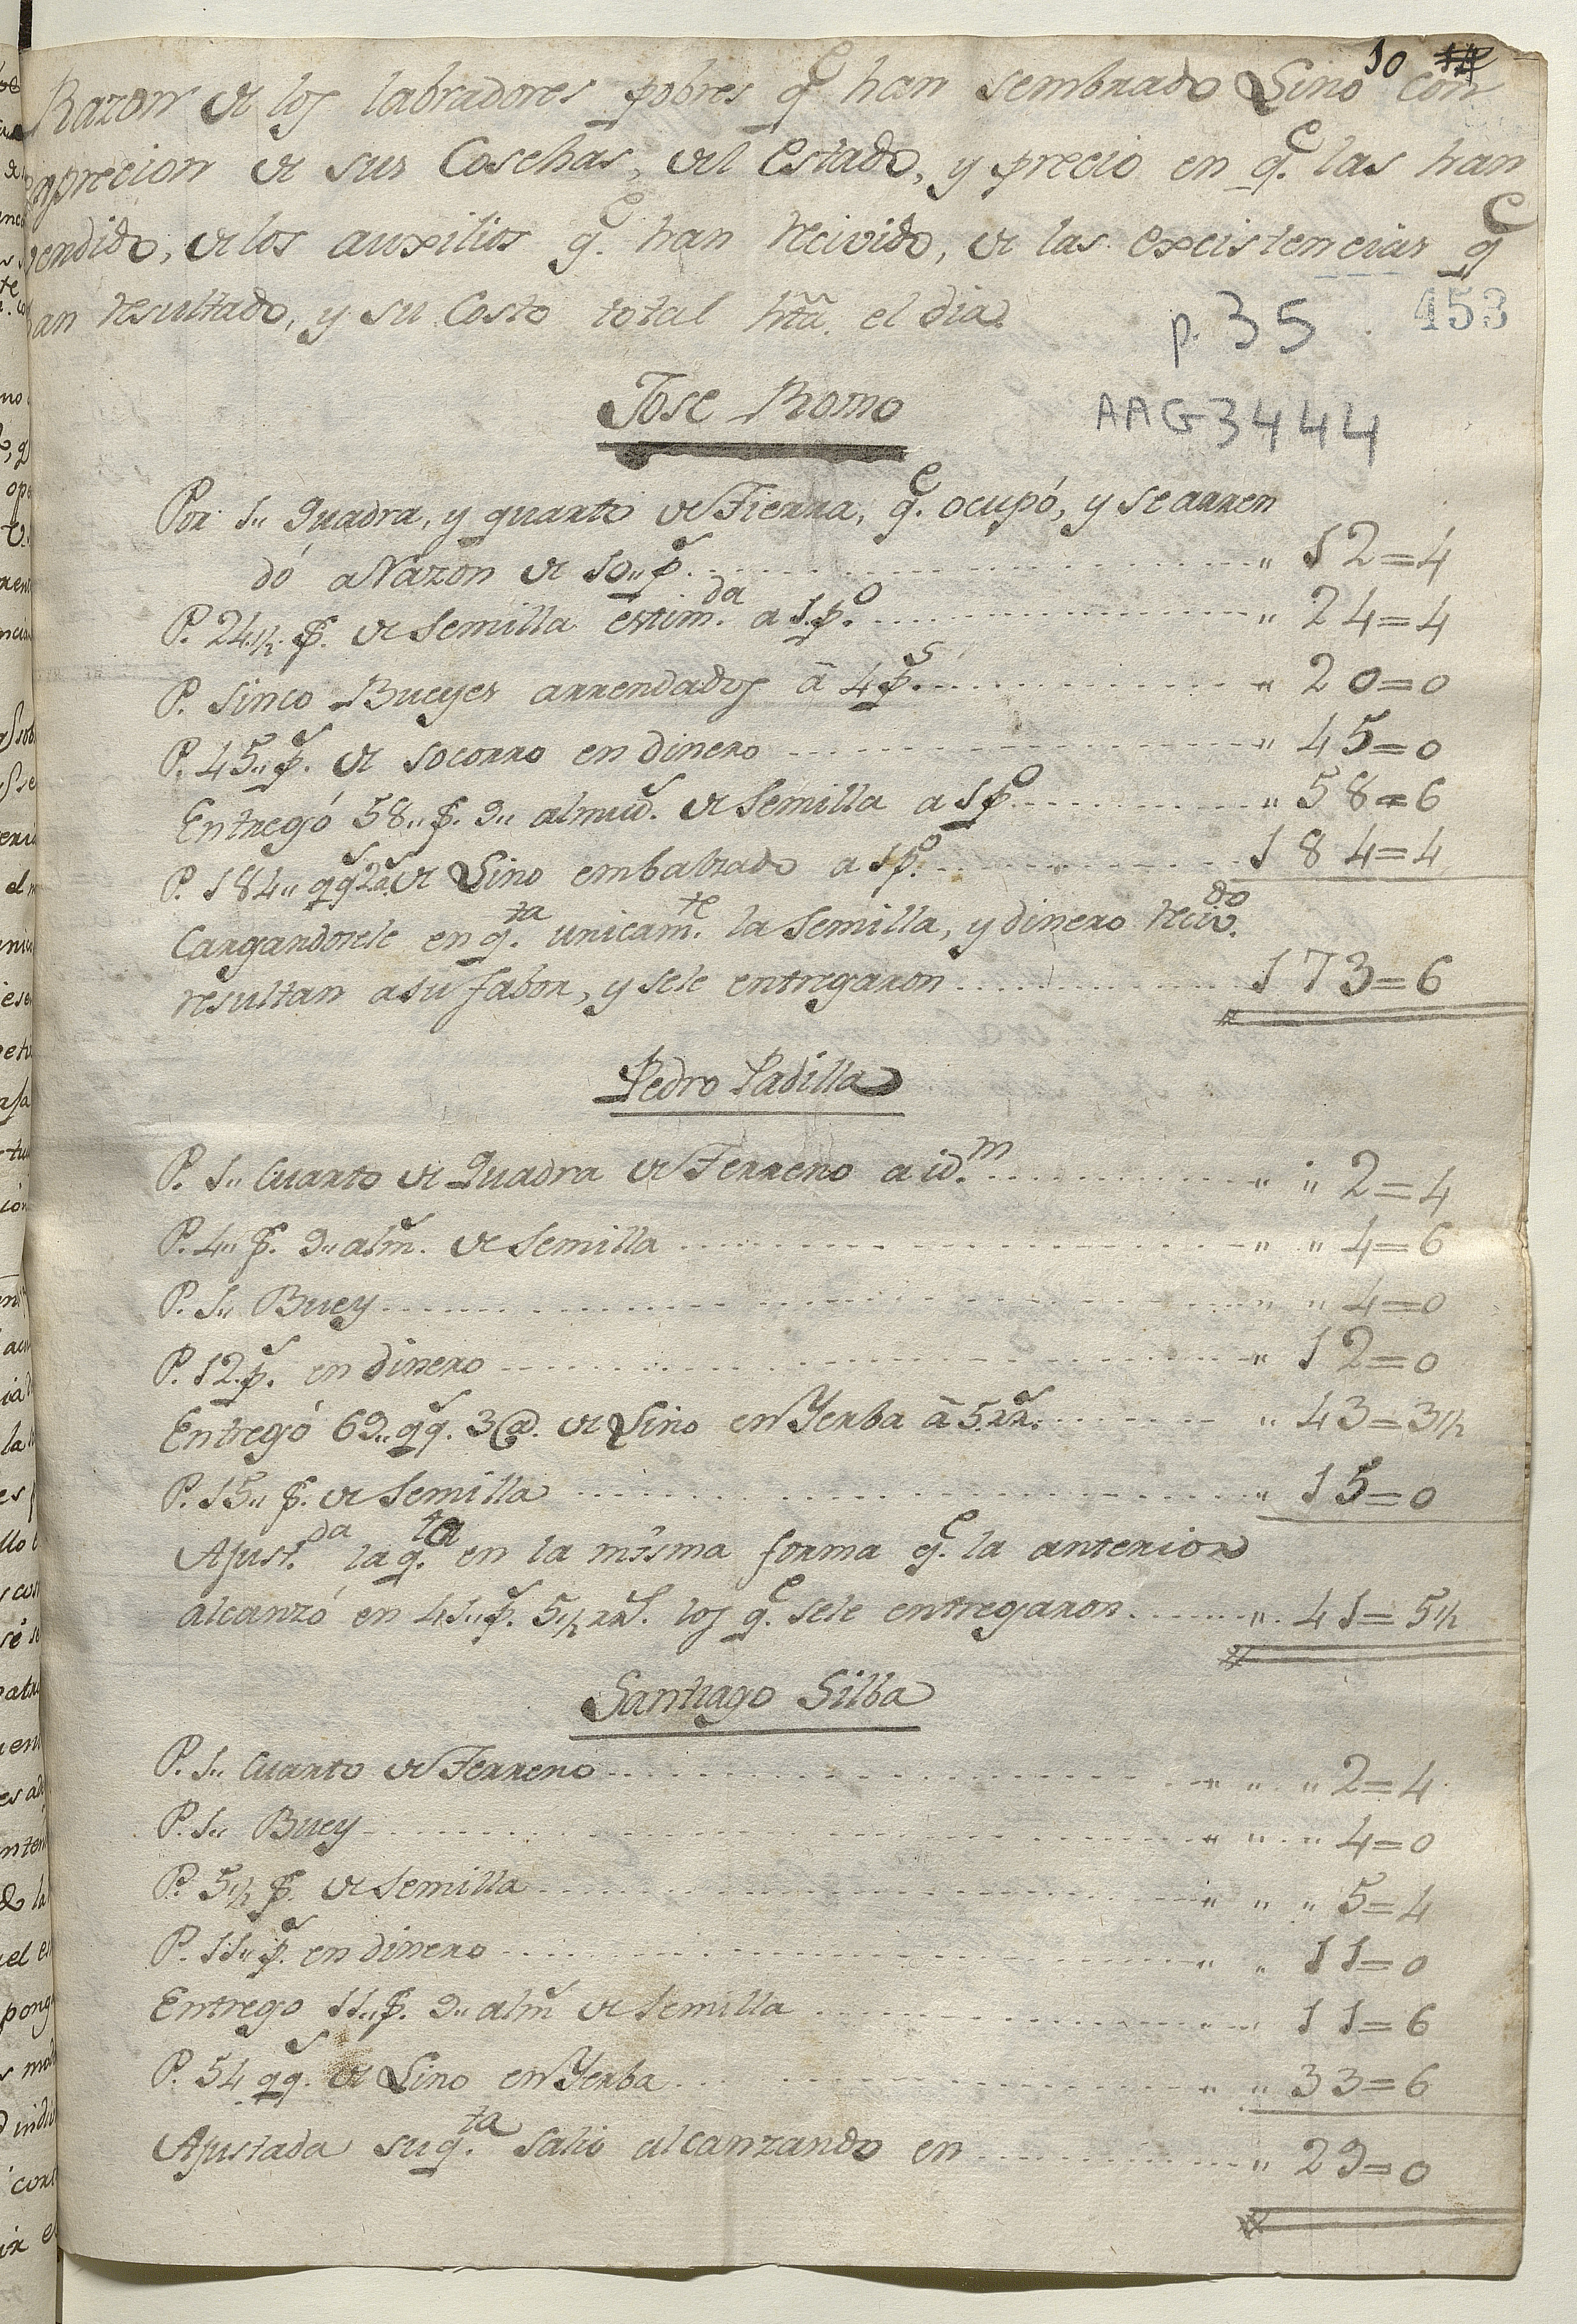 10 14
Razon de los labradores pobres q.e han sembrado Lino con
exprecion de sus Cosechas, del estado, y precio en q.e las han
vendido, de los auxilios q.e han recivido, de las excistencias q.e
han resultado, y su Costo total hta. el dia.
p. 35 . 153
AAG3444
Jose Romo
Por 1,, Quadra, y quarto de Tierra, q.e ocupó, y se arren
dó a Razon de 10,, p.s " 12=4
P. 24 1/2 f. de Semilla estim.da a 1 p.o " 24=4
P. Sinco Bueyes arrendados â 4 p.s " 20=0
P. 45,, p.s de socorro en dinero " 45=0
Entregó 58,, f. 9,, almud.s de Semilla a 1 p.o " 58=6
P. 184,, qq.s 2 a.s de Lino embalzado a 1 p.o 184=4
Cargandosele en q.ta unicam.te la Semilla, y dinero reciv.do
resultan a su fabor, y se le entregaron 173=6
Pedro Padilla
P. 1,, Cuarto de Quadra de Terreno a id.m " " 2=4
P. 4,, f. 9,, alm.s de Semilla " " 4=6
P. 1,, Buey " " 4=0
P. 12 p.s en dinero " 12=0
Entregó 69,, qq. 3 @. de Lino en Yerba â 5 rr.s " 43=3 1/2
P. 15,, f. de Semilla " 15=0
Ajust.da la q.ta en la misma forma q.e la anterior
alcanzó en 41,, p.s 5 1/2 rr.s los q.e se le entregaron " 41=5 1/2
Santiago Silba
P. 1,, Cuarto de Terreno " " " 2=4
P. 1,, Buey " " " 4=0
P. 5 1/2 f. de Semilla " " " 5=4
P. 11,, p.s en dinero " " 11=0
Entrego 11,, f. 9,, alm.s de Semilla " " 11=6
P. 54 qq.s de Lino en Yerba " " 33=6
Ajustada su q.ta salio alcanzando en " 29=0